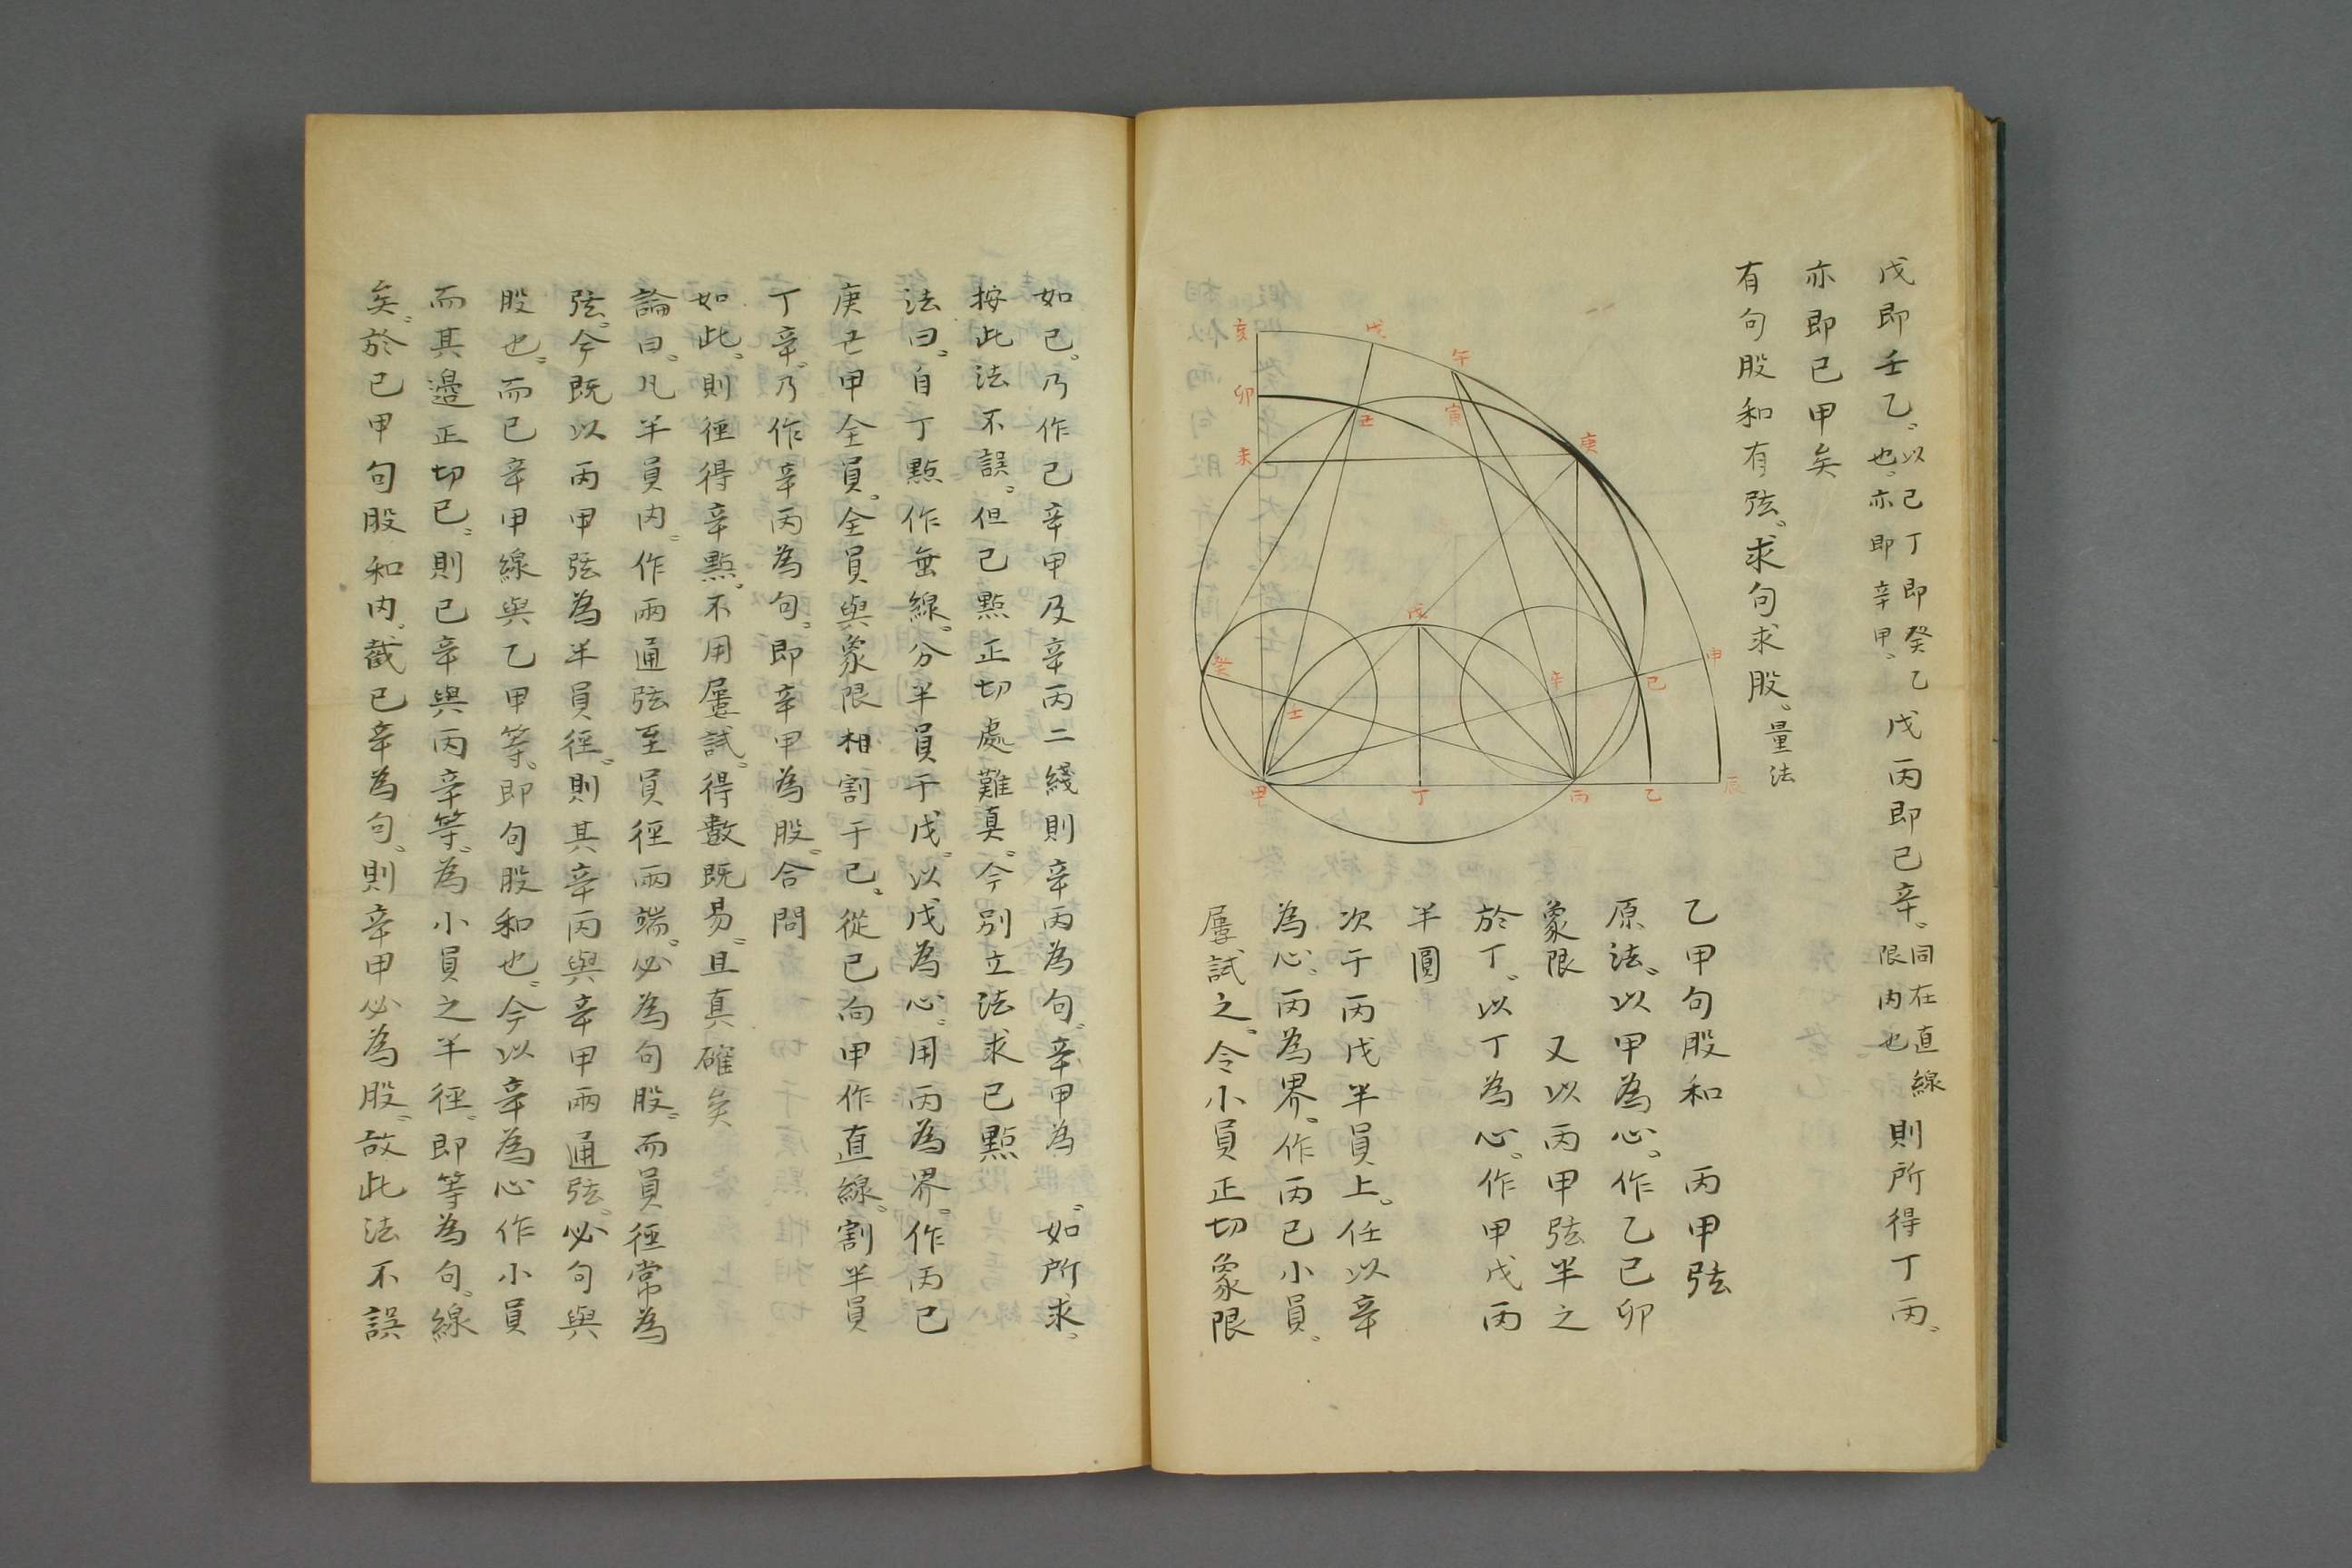 戊即壬乙。以己丁即癸乙也。亦即辛甲。戊丙即己辛。同在直線限內也則所得丁丙。
亦即己甲矣
有句股和有弦。求句求股。量法
亥
戌
午
卯
丑
寅
庚
未
戊
癸
壬
辛
己
申
甲
丁
丙
乙
辰
乙甲句股和　丙甲弦
原法。以甲為心。作乙己卯
象限　又以丙甲弦半之
於丁。以丁為心。作甲戊丙
半圓
次于丙戊半員上。任以辛
為心。丙為界。作丙己小員。
屢試之。令小員正切象限
如己。乃作己辛甲及辛丙二綫則辛丙為句。辛甲為。如所求。
按此法不誤。但己點正切處難真。今別立法求己點
法曰。自丁點作垂線。分半員于戊。以戊為心。用丙為界。作丙己
庚丑甲全員。全員與象限相割于己。從己向甲作直線。割半員
丁辛。乃作辛丙為句。即辛甲為股。合問
如此。則徑得辛點。不用屢試。得數既易。且真確矣
論曰。凡半員內。作兩通弦至員徑兩端。必為句股。而員徑常為
弦。今既以丙甲弦為半員徑。則其辛丙與辛甲兩通弦。必句與
股也。而己辛甲線與乙甲等。即句股和也。今以辛為心作小員
而其邊正切己。則己辛與丙辛等。為小員之半徑。即等為句。線
矣。於己甲句股和內。截己辛為句。則辛甲必為股。故此法不誤